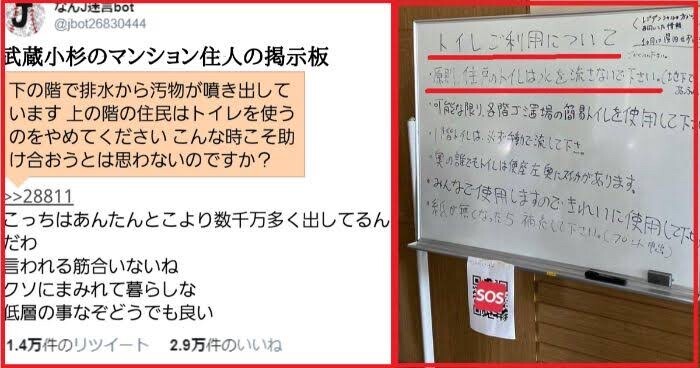 なんJ迷言bot
@jbot26830444
武蔵小杉のマンション住人の掲示板
下の階で排水から汚物が噴き出して
います 上の階の住民はトイレを使う
のをやめてください こんな時こそ助
け合おうとは思わないのですか？
>>28811
こっちはあんたんとこより数千万多く出してるん
だわ
言われる筋合いないね
クソにまみれて暮らしな
低層の事なぞどうでも良い
1.4万件のリツイート 2.9万件のいいね
トイレご利用について
・原則、住戸のトイレは水を流さないで下さい。
・可能な限り、各階ゴミ置場の簡易トイレを使用して下
・1階トイレは、
手動で流して下さ
・奥の誰でもトイレは便座左奥に
があります。
・みんなで使用しますのできれいに使用して下さ
・紙が無くなったら補充して下さい。
SOS